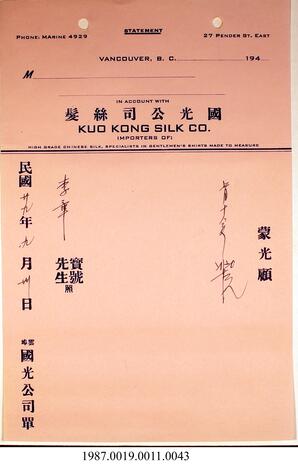 STATEMENT
PHONE: MARINE 4929
27 PENDER ST. EAST
VANCOUVER, B. C. 194
M
IN ACCOUNT WITH
髮絲司公光國
KUO KONG SILK CO.
IMPORTERS OF:
HIGH GRADE CHINESE SILK, SPECIALISTS IN GENTLEMEN'S SHIRTS MADE TO MEASURE
蒙光顧
李
寶號
先生
照
民國廿九年九月 日
國光公司單
1987.0019.0011.0043